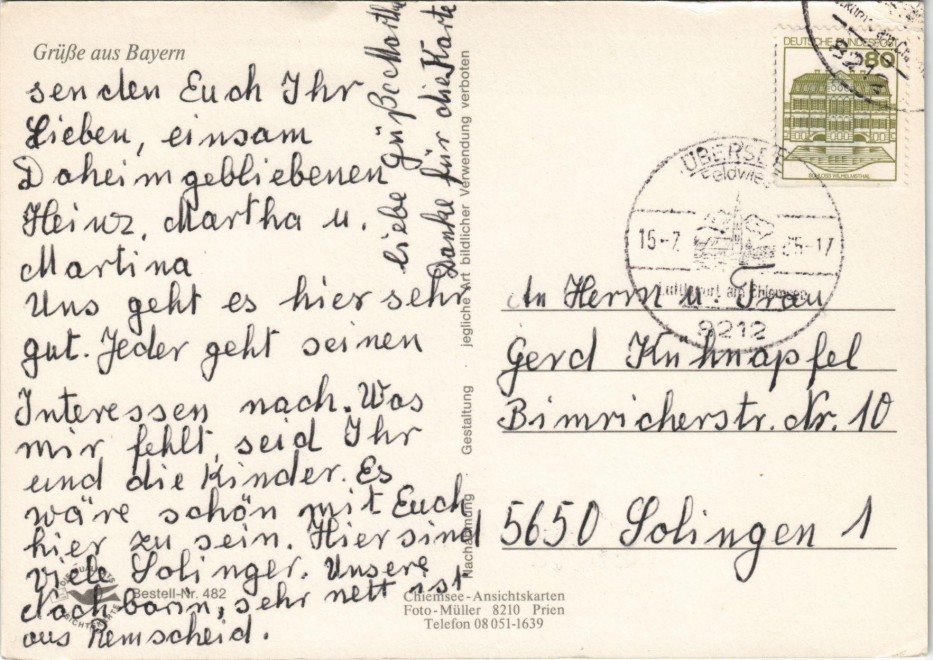 Grüße aus Bayern
senden Euch Ihr
Lieben, einsam
Daheimgebliebenen
Heinz, Martha u.
Martina
Uns geht es hier sehr
gut. Jeder geht seinen
Interessen nach. Was
mir fehlt, seid Ihr
und die Kinder. Es
wäre schön mit Euch
hier zu sein. Hier sind
viele Solinger. Unsere
Nachbarin, sehr nett ist
aus Remscheid.
liebe Grüße Martha
Danke für die Karte
Nachahmung · Gestaltung · jegliche Art bildlicher Verwendung verboten
Bestell-Nr. 482
Chiemsee-Ansichtskarten
Foto-Müller 8210 Prien
Telefon 08051-1639
DEUTSCHE BUNDESPOST
80
SCHLOSS WILHELMSTHAL
8212
ÜBERSEE
Feldwies
15-7
-17
am Chiemsee
8212
An Herrn u. Frau
Gerd Kühnapfel
Bimricherstr. Nr. 10
5650 Solingen 1